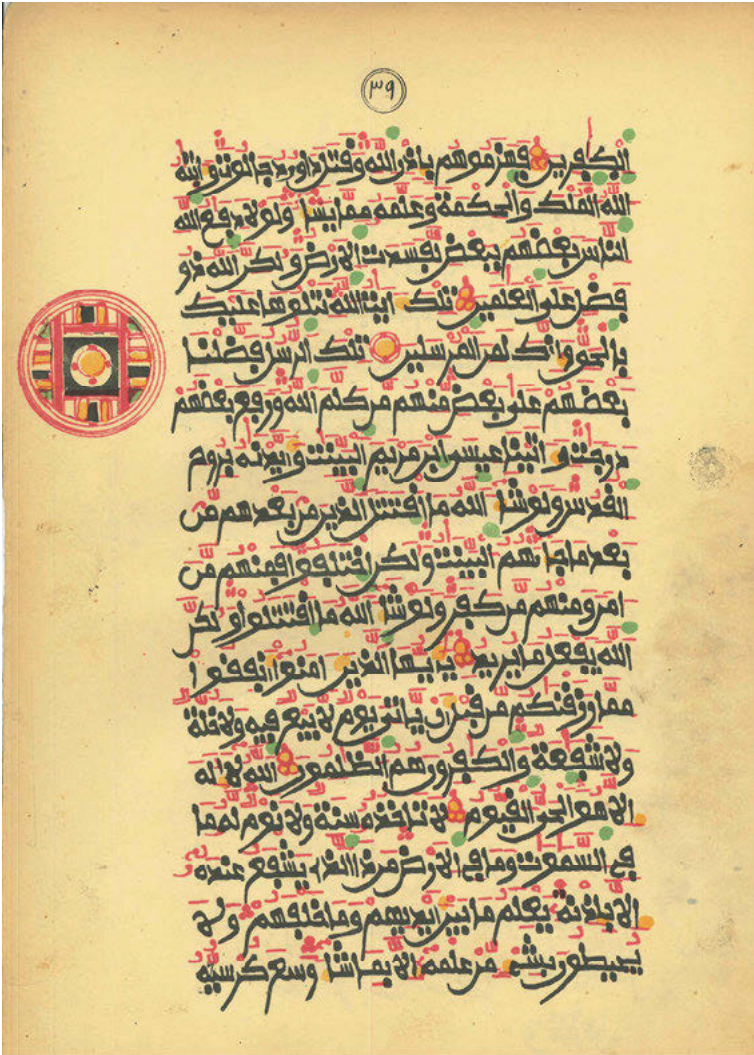 ٣٩
الكفرين فهزموهم بإذن الله وقتل داود جالوت وءاتيه
الله الملك والحكمة وعلمه مما يشاء ولولا دفع الله
الناس بعضهم ببعض لفسدت الارض ولكن الله ذو
فضل على العلمين تلك ءايت الله نتلوها عليك
بالحق وإنك لمن المرسلين تلك الرسل فضلنا
بعضهم على بعض منهم من كلم الله ورفع بعضهم
درجت وءاتينا عيسى ابن مريم البينت وأيدنه بروح
القدس ولو شاء الله ما اقتتل الذين من بعدهم من
بعد ما جاءتهم البينت ولكن اختلفوا فمنهم من
ءامن ومنهم من كفر ولو شاء الله ما اقتتلوا ولكن
الله يفعل ما يريد يأيها الذين ءامنوا أنفقوا
مما رزقنكم من قبل أن ياتي يوم لا بيع فيه ولا خلة
ولا شفعة والكفرون هم الظلمون الله لا إله
إلا هو الحي القيوم لا تاخذه سنة ولا نوم له ما
في السموت وما في الارض من ذا الذي يشفع عنده
إلا بإذنه يعلم ما بين أيديهم وما خلفهم ولا
يحيطون بشيء من علمه إلا بما شاء وسع كرسيه